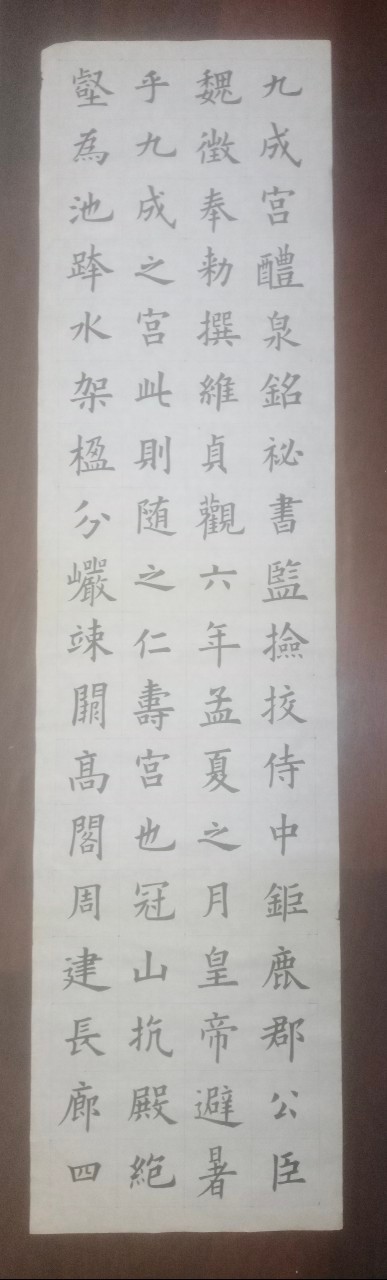 九成宮醴泉銘祕書監撿挍侍中鉅鹿郡公臣
魏徵奉勑撰維貞觀六年孟夏之月皇帝避暑
乎九成之宮此則随之仁壽宮也冠山抗殿絕
壑為池跨水架楹分巖竦闕高閣周建長廊四